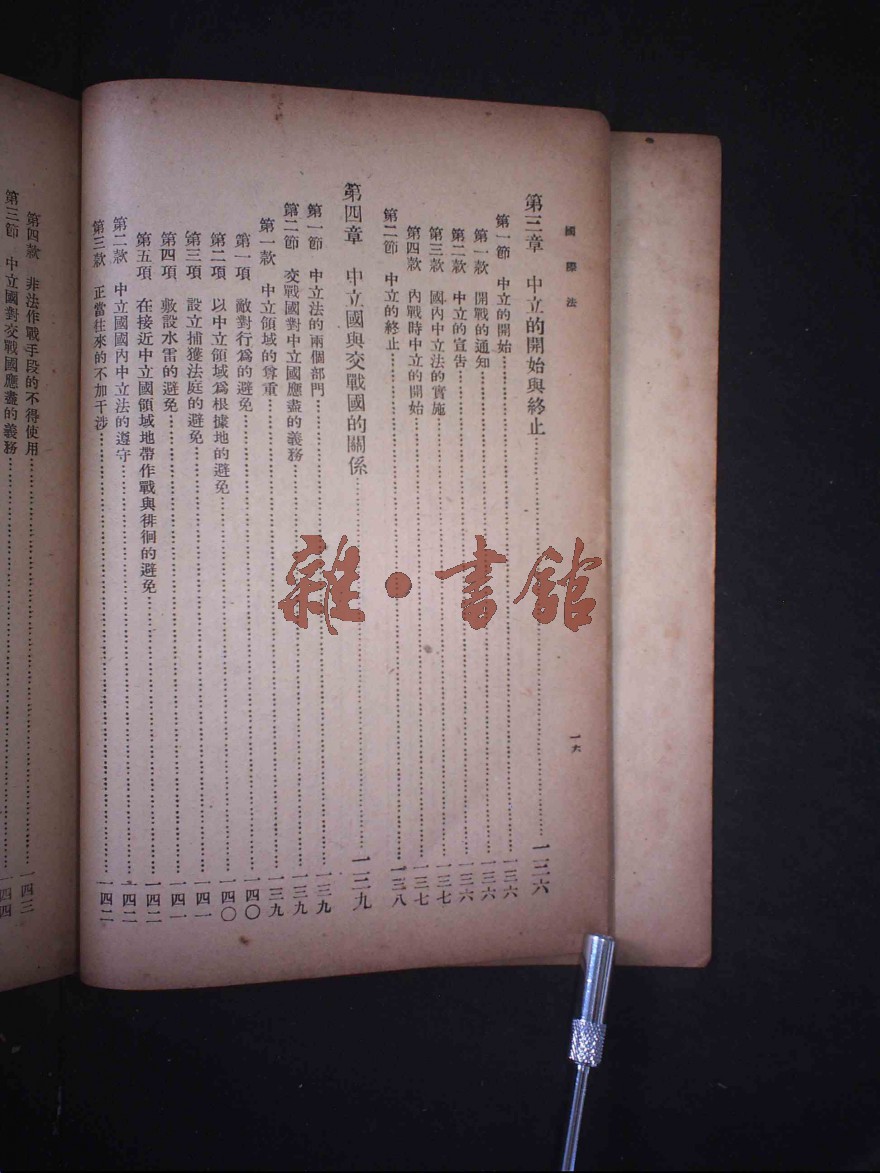 國際法
一六
第三章 中立的開始與終止……一三六
第一節 中立的開始……一三六
第一款 開戰的通知……一三六
第二款 中立的宣告……一三六
第三款 國內中立法的實施……一三七
第四款 內戰時中立的開始……一三七
第二節 中立的終止……一三八
第四章 中立國與交戰國的關係……一三九
第一節 中立法的兩個部門……一三九
第二節 交戰國對中立國應盡的義務……一三九
第一款 中立領域的尊重……一三九
第一項 敵對行爲的避免……一四〇
第二項 以中立領域爲根據地的避免……一四〇
第三項 設立捕獲法庭的避免……一四一
第四項 敷設水雷的避免……一四一
第五項 在接近中立國領域地帶作戰與徘徊的避免……一四二
第二款 中立國國內中立法的遵守……一四二
第三款 正當往來的不加干涉……一四二
第四款 非法作戰手段的不得使用……一四三
第三節 中立國對交戰國應盡的義務……一四四
雜·書館